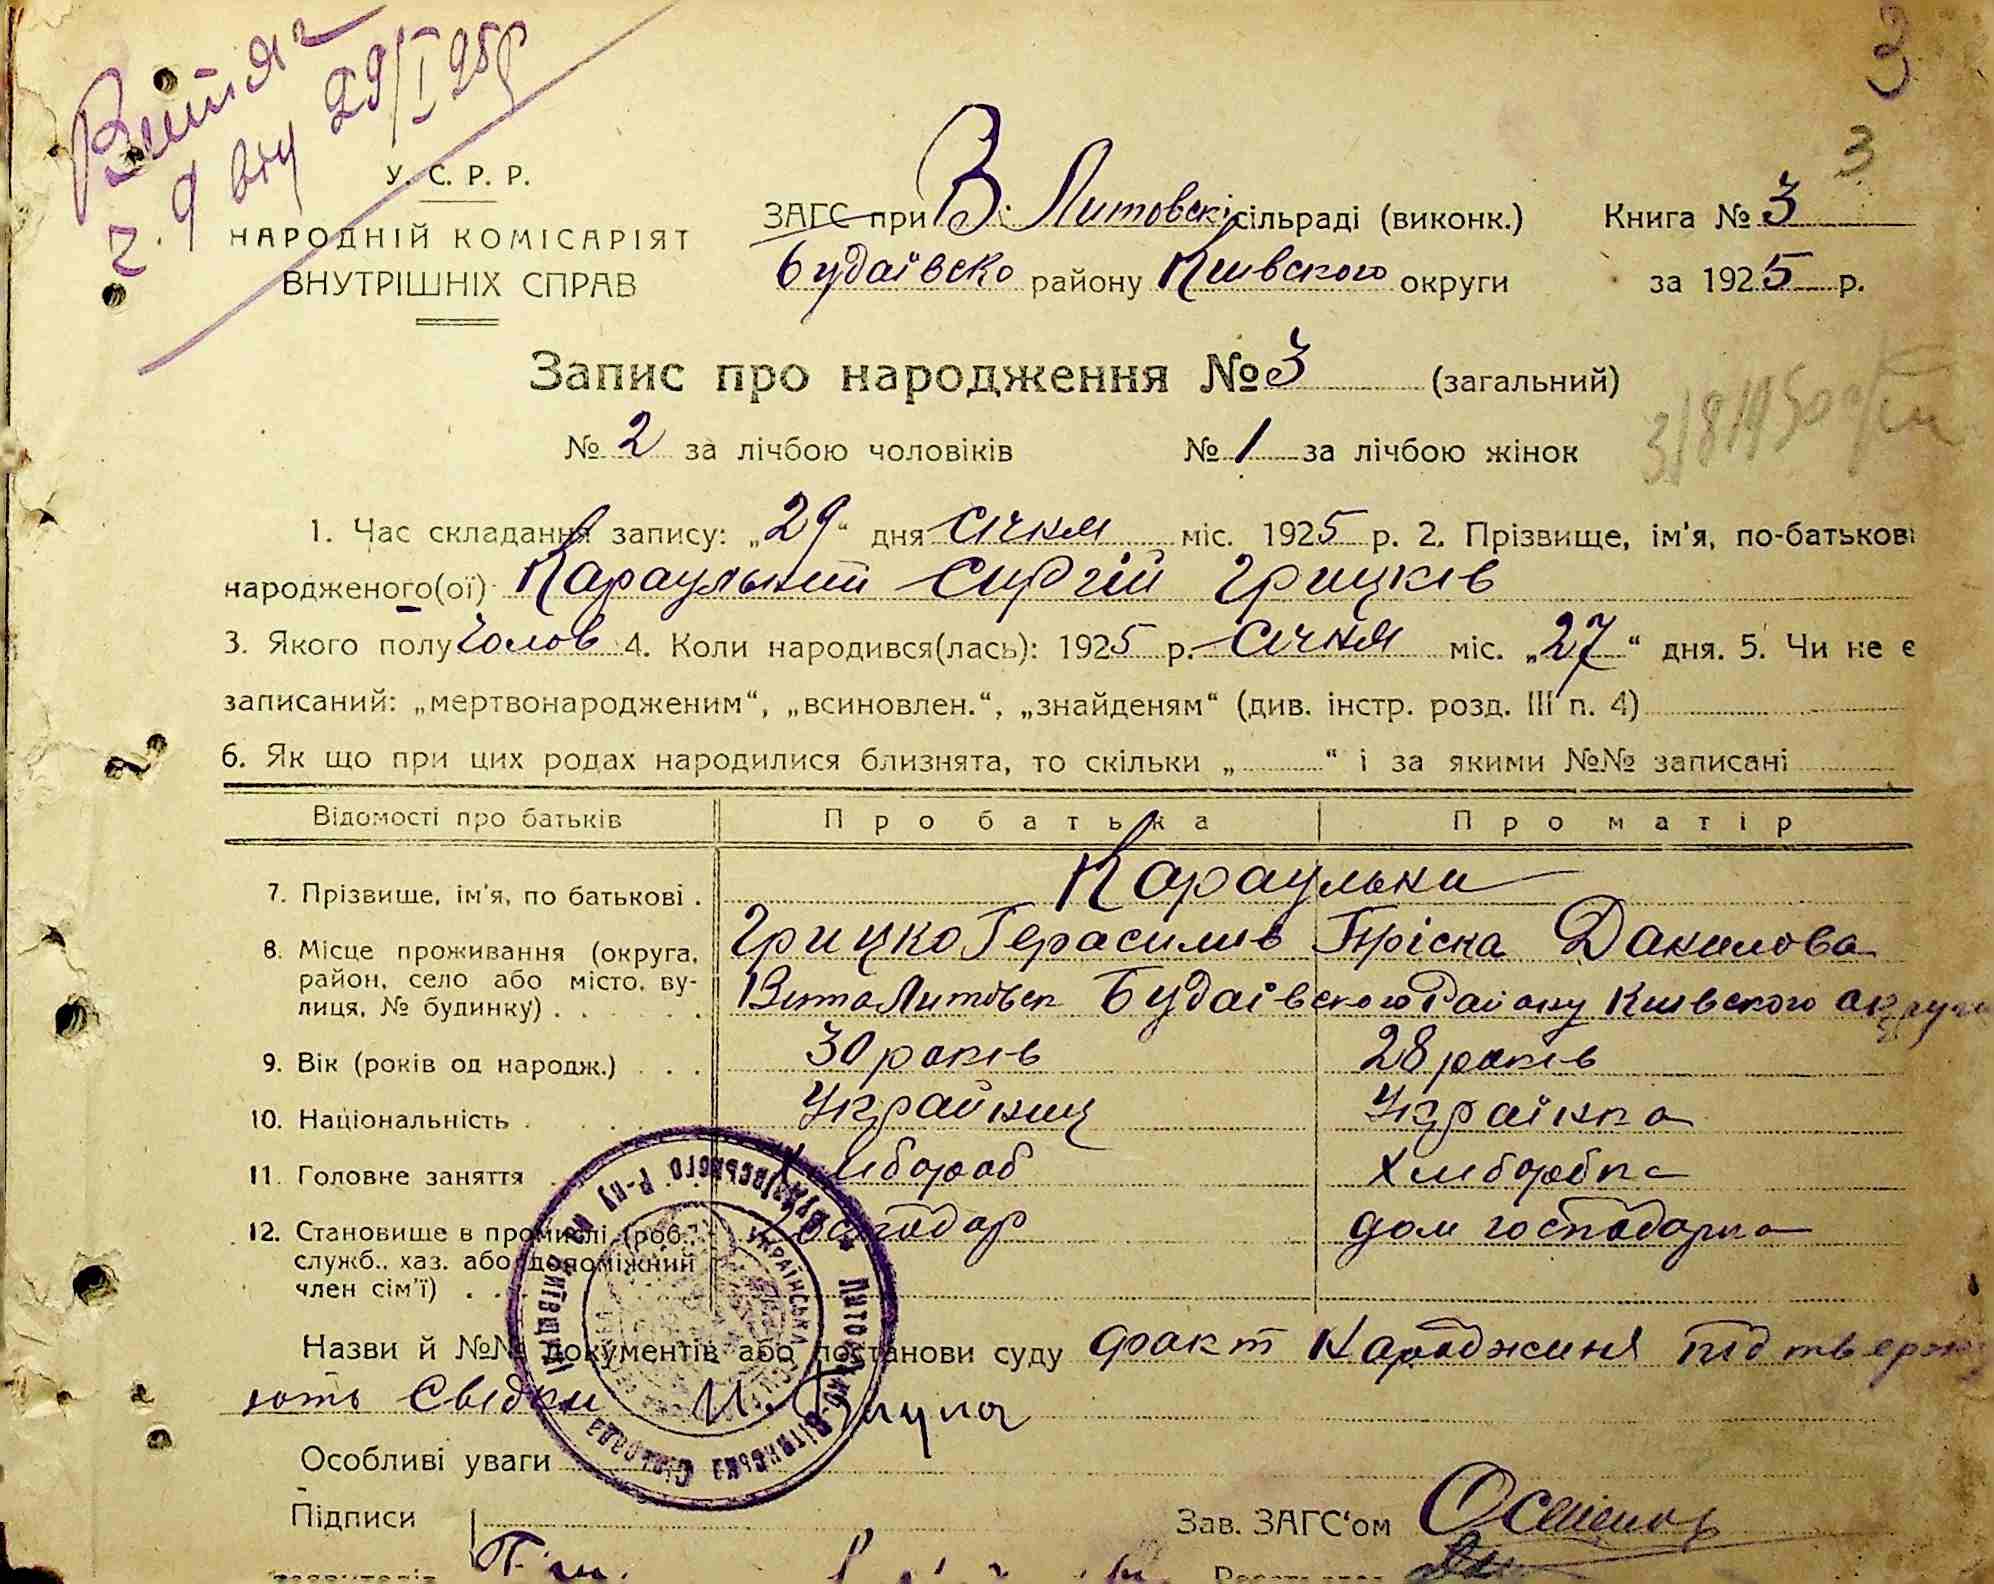 Витяг
ч. 9 від 29/I 25р
3
3
У. С. Р. Р.
НАРОДНІЙ КОМІСАРІЯТ
ВНУТРІШНІХ СПРАВ
ЗАГС при В. Литовскі сільраді (виконк.)
Будаївско району Київского округи
Книга № 3
за 1925 р.
Запис про народження № 3 (загальний)
№ 2 за лічбою чоловіків № 1 за лічбою жінок
1. Час складання запису: „29“ дня січня міс. 1925 р. 2. Прізвище, ім'я, по-батькові
народженого(ої) Караульний Сиргій Грицків
3. Якого полу чолов 4. Коли народився(лась): 1925 р. січня міс. „27“ дня. 5. Чи не є
записаний: „мертвонародженим“, „всиновлен.“, „знайденям“ (див. інстр. розд. III п. 4)
6. Як що при цих родах народилися близнята, то скільки „ “ і за якими №№ записані
Відомості про батьків Про батька Про матір
7. Прізвище, ім'я, по батькові . Караульни
8. Місце проживання (округа, Грицко Герасимів Пріска Данилова
район, село або місто, ву-
лиця, № будинку) . . . . . Вита Литовск Будаівского Району Київского округи
9. Вік (років од народж.) . . . 30 років 28 років
10. Національність . . . Украйнец Украінка
11. Головне заняття . Хлибороб Хлиборобка
12. Становище в промислі (роб., Господар дом господарка
служб., хаз. або допоміжний
член сім'ї) . . .
Назви й №№ документів або постанови суду факт Народжиня підтвержу
ють Свідки
Особливі уваги
Підписи
Зав. ЗАГС'ом
Литовсько-Вітянська Сільрада Будаївського Р-ну на Київщині
УКРАЇНСЬКА